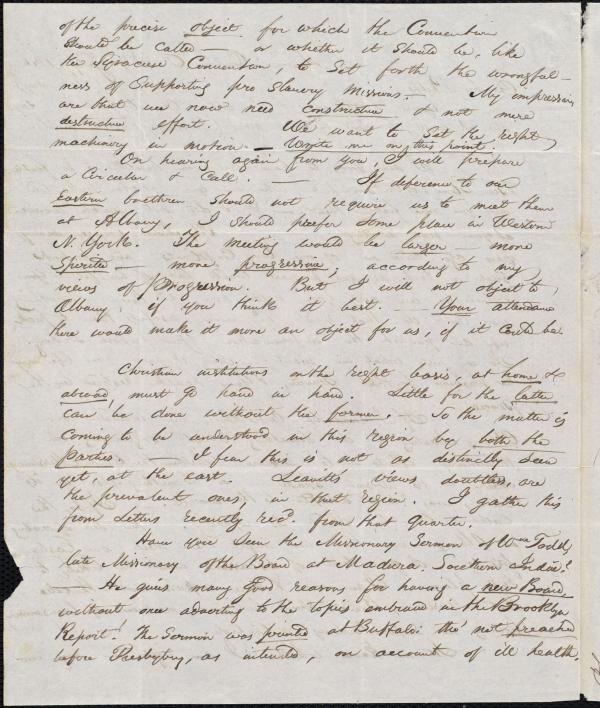 of the precise object for which the Convention
should be called — or whether it should be, like
the Syracuse Convention, to set forth the wrongful-
ness of supporting pro slavery missions. — My impressions
are that we now need constructive & not mere
destructive effort. We want to set the right
machinery in motion. — Write me on this point.
On hearing again from you, I will prepare
a Circular & Call. — If deference to our
Eastern brethren should not require us to meet them
at Albany, I should prefer some place in Western
N. York. The meeting would be larger — more
spirited — more progressive, according to my
views of progression. But I will not object to
Albany, if you think it best. — Your attendance
there would make it more an object for us, if it could be.
Christian institutions on the right basis, at home &
abroad, must go hand in hand. Little for the latter
can be done without the former. — So the matter is
coming to be understood in this region by both the
parties. — I fear this is not as distinctly seen
yet, at the east. Leavitt's views doubtless, are
the prevalent ones, in that region. I gather this
from Letters recently recd. from that quarter.
Have you seen the Missionary Sermon of Wm Todd,
late Missionary of the Board at Madura, Southern India?
— He gives many good reasons for having a new Board,
without once adverting to the topics embraced in the Brooklyn
Report! The Sermon was printed at Buffalo: tho' not preached
before Presbytery, as intended, on account of ill health.